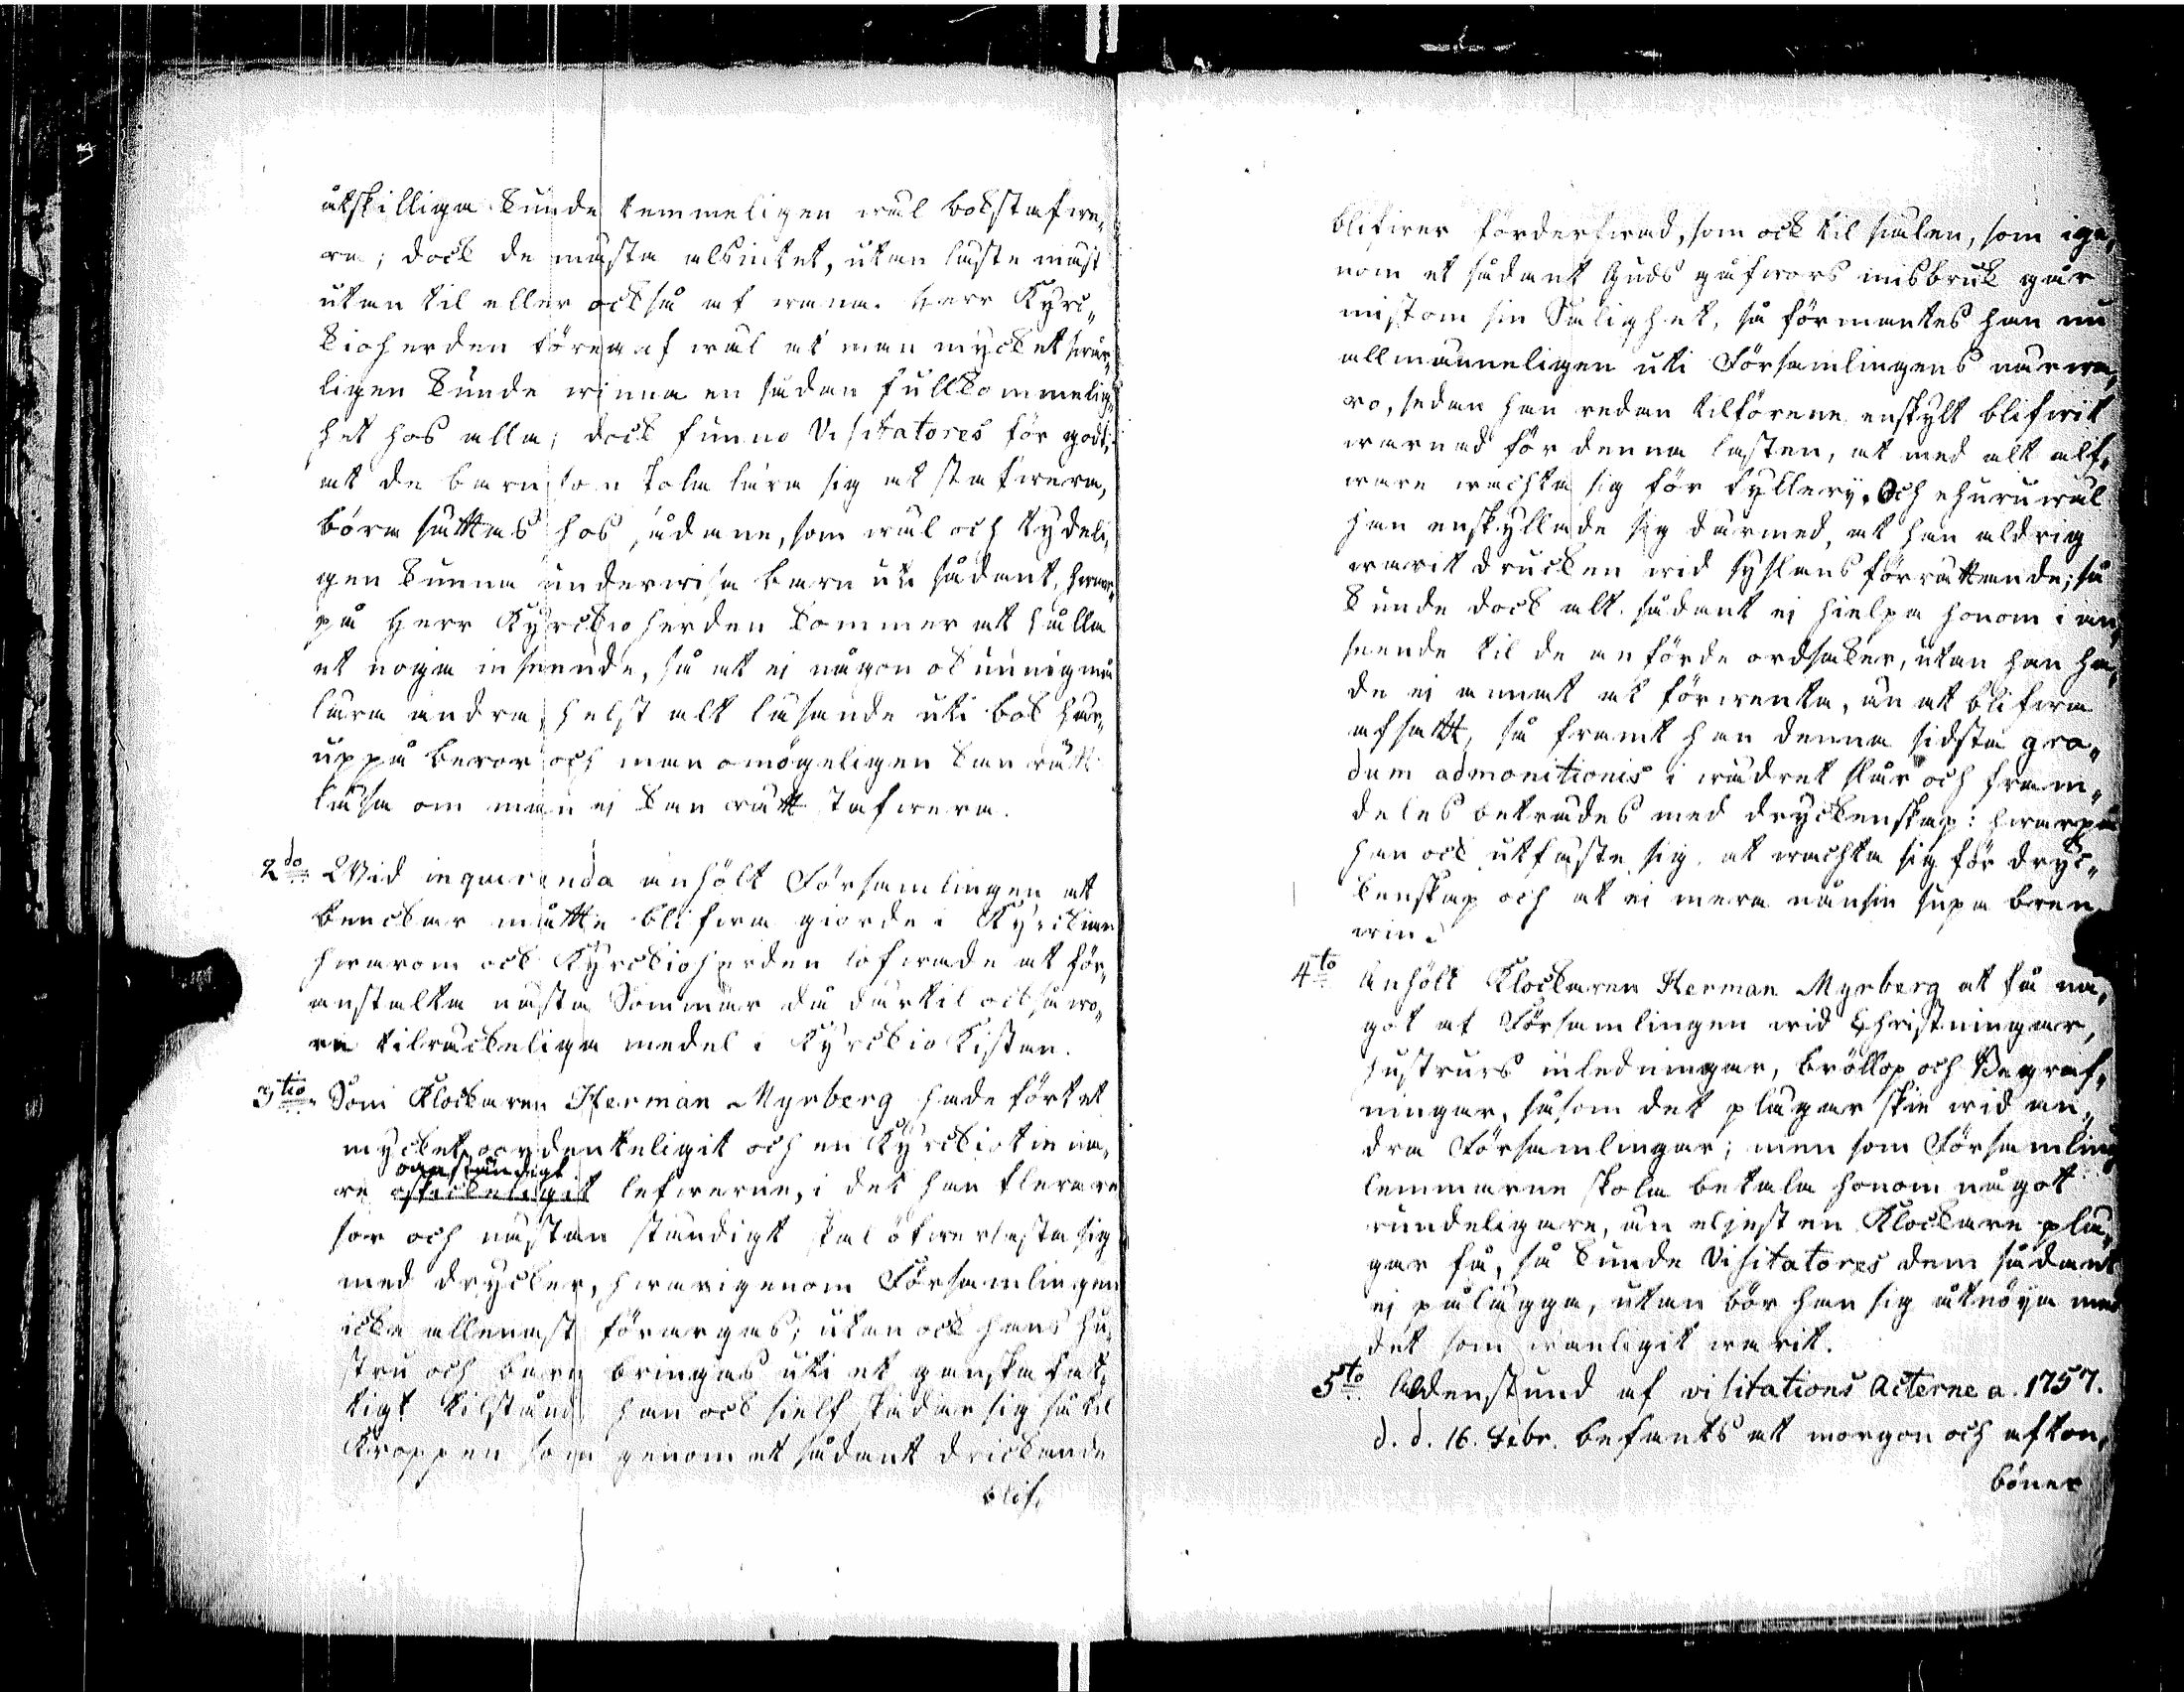 åtskilliga kunde temmeligen wäl bokstafwe„
ra; dock de mästa alsintet, utan läste mäst
utan til eller också af wana. Herr Kyrc„
kioherden föregaf wäl at man mycket swår„
ligen kunde winna en sådan fullkommelig„
het hos alla; dock funno Visitatores för godt,
at de barn som skola lära sig at stafwera,
böra sättas hos sådane, som wäl och tydeli„
gen kunna underwisa barn uti sådant, hwar„
på Herr Kyrckioherden kommer att hålla
et noga inseende, så at ej någon okunnig må
lära andra, helst alt läsande uti bok här„
uppå beror och man omögeligen kan rätt
läsa om man ej kan rätt stafwera.
2do Wid inquirenda anhölt Församlingen att
benckar måtte blifwa giorde i Kyrckian
hwarom ock Kyrckioherden lofwade at för„
anstalta nästa Sommar då därtil också wo„
ro tilräckeliga medel i Kyrckio Kistan.
3tio. Som Klockaren Herman Myrberg hade fört et
mycket oordenteligit och en Kyrckiotiena„
re oanständigt
oskickeligit lefwerne, i det han flere re„
sor och nästan ständigt skal öfwerlasta sig
med drycker, hwarigenom Församlingen
icke allenast förargas; utan ock hans hu„
stru och barn bringas uti et ganska fat„
tigt tilstånd, han ock sielf skadar sig så til
kroppen som genom et sådant drickande
blif„
blifwer förderfwad, som ock til siälen, som ige„
nom et sådant Guds gåfwors misbruk går
miste om sin Salighet, så förmantes han nu
allmänneligen uti Församlingens närwa„
ro, sedan han redan tilförene enskylt blifwit
warnad för denna lasten, at med alt alf„
ware wachta sig för fyllery. Och ehuruwäl
han enskyllade sig därmed, at han aldrig
warit drucken wid syslans förrättande; så
kunde dock alt sådant ej hielpa honom i an„
seende til de anförde ordsaker, utan han ha„
de ej annat at förwenta, än at blifwa
afsatt, så framt han denna sidsta gra„
dum admonitionis i wädret slår och fram„
deles beträdes med dryckenskap: hwarpå
han ock utfäste sig at wachta sig för dryc„
kenskap och at ei mera nånsin supa bren„
win.
4to Anhölt Klockaren Herman Myrberg at få nå„
got af Församlingen wid Christningar,
hustrurs inledningar, bröllop och Begraf„
ningar, såsom det plägar skie wid an„
dra Församlingar; men som Församlings
lemmarne skola betala honom något
rundeligare, än eljest en Klockare plä„
gar få, så kunde Visitatores dem sådant
ej pålägga, utan bör han sig åtnöya med
det som wanligit warit.
5to Aldenstund af visitations Acterne a. 1757.
d. d. 16. Febr. befants att morgon och afton„
böner